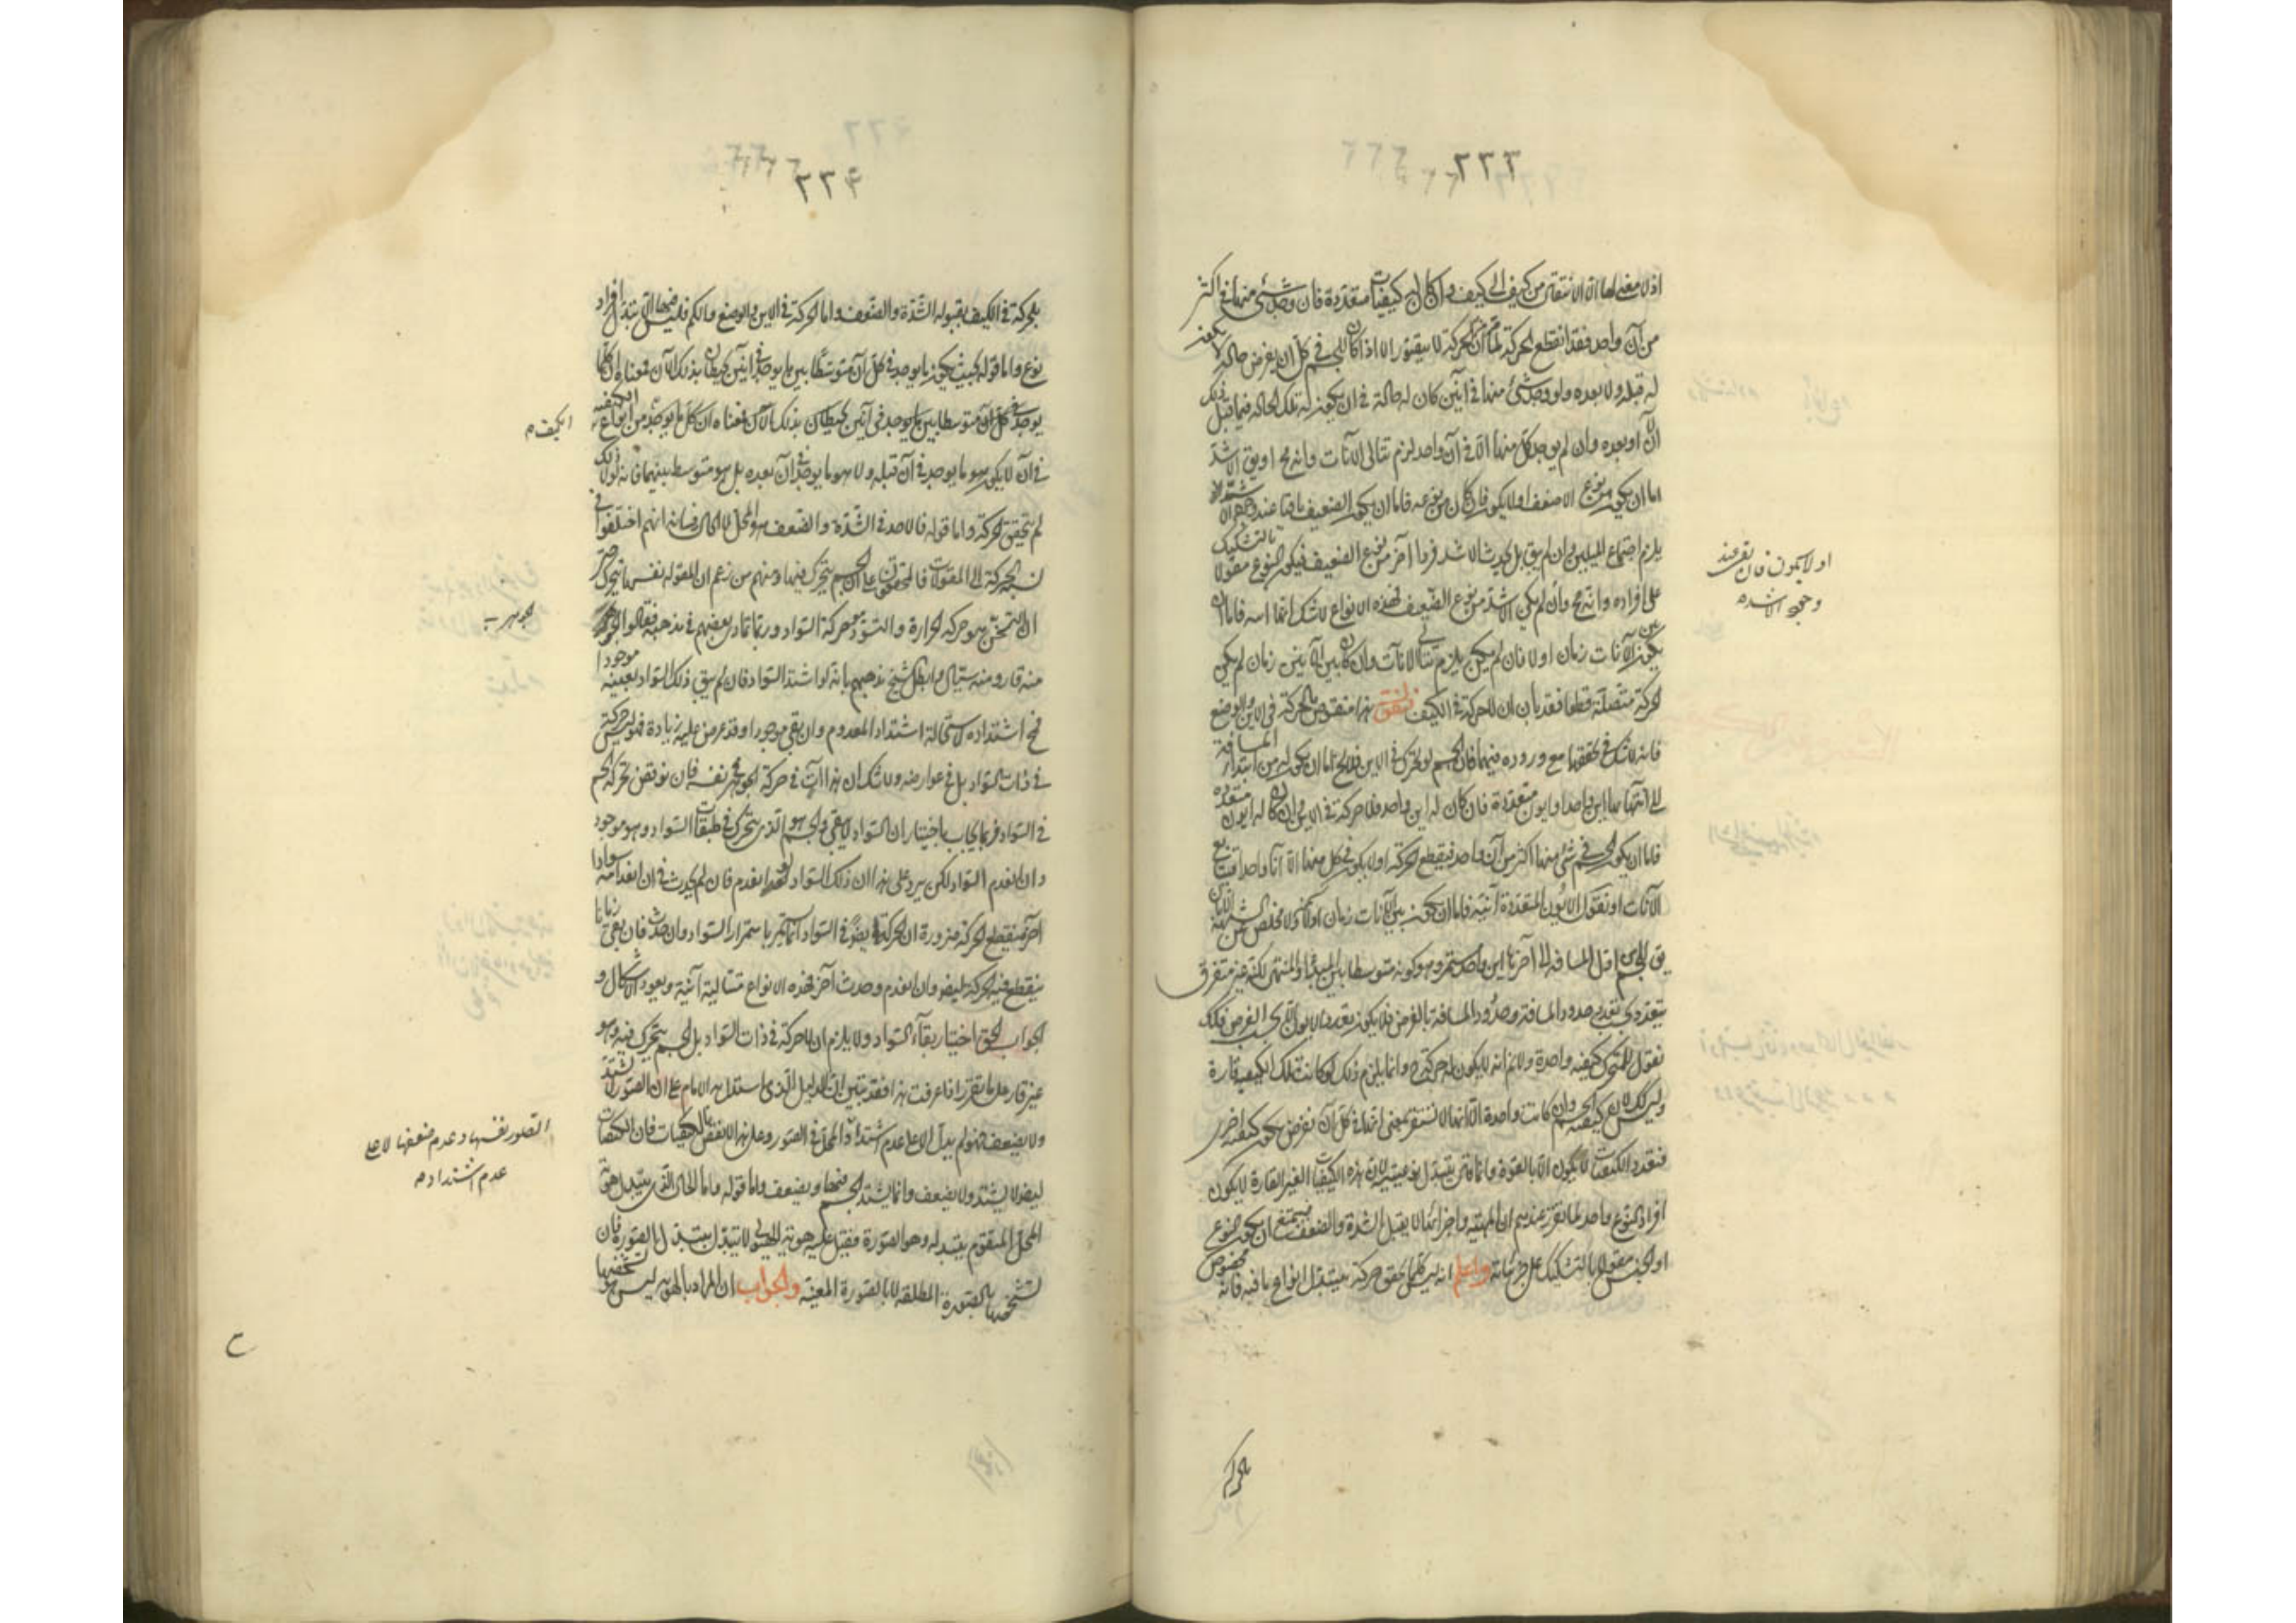 ٢٢٣
اذ لا معنى لها الا الانتقال من كيف الى كيف وان كان له كيفيات متعددة فان وجد شئ منها في اكثر
من آن واحد فقد انقطع الحركة لما مر ان الحركة لا يتصور الا اذا كان للجسم في كل آن يفرض حالة لا يكون
له قبله ولا بعده ولو وجد شئ منها في آنين كان له حالة في آن يكون له تلك الحالة فيما قبل ذلك
الآن او بعده وان لم يوجد كل منها الا في آن واحد لزم تتالى الآنات وانه مح او يق الاشد
اما ان يكون من نوع الاضعف او لا يكون فان كان من نوعه فاما ان يكون الضعيف باقيا عند وجود الاشد
يلزم اجتماع المثلين وان لم يبق بل يحدث الاشد فردا آخر من نوع الضعيف فيكون النوع مقولا بالتشكيك
على افراده وانه مح وان لم يكن الاشد من نوع الضعيف فهذه الانواع لا شك انها آنية فاما ان
يكون بين الآنات زمان او لا فان لم يكن يلزم تتالى الآنات وان كان بين الآنين زمان لم يكن
الحركة متصلة قطعا فقد بان ان لا حركة في الكيف فنقول هذا منقوض بالحركة في الاين والوضع
فانه لا شك في تحققها مع وروده فيهما فان الجسم لو تحرك في الاين فلا يخ اما ان يكون له من ابتداء المسافة
الى انتهائها اين واحد او ايون متعددة فان كان له اين واحد فلا حركة في الاين وان كان له ايون متعددة
فاما ان يكون الجسم في شئ منها اكثر من آن واحد فينقطع الحركة او لا يكون في كل منها الا آنا واحدا فيتتابع
الآنات او نقول الايون المتعددة آنية فاما ان يكون بين الآنات زمان او لا ولا مخلص عن الشبهة الا ان
يق للجسم من اول المسافة الى آخرها اين واحد مستمر وهو كونه متوسطا بين المبدأ والمنتهى لكنه غير مستقر
يتعدد بحسب تعدد حدود المسافة وحدود المسافة بالفرض فلا يكون تعدد الايون الا بحسب الفرض فكذلك
نقول للمتحرك كيفية واحدة ولا نم انه لا يكون له حركة ح وانما يلزم ذلك لو كانت تلك الكيفية قارة
وليس كذلك لان كيفية الجسم وان كانت واحدة الا انها لا تستقر بمعنى انها في كل آن نفرض يكون كيفية اخرى
فتعدد الكيفيات لا يكون الا بالقوة وانما قال يتبدل نوعيته لان هذه الكيفيات الغير القارة لا يكون
افراد النوع واحد لما تقرر عندهم ان الماهية واجزائها لا يقبل الشدة والضعف فيمتنع ان يكون النوع
او الجنس مقولا بالتشكيك على جزئياته واعلم انه ليس كلما تحقق حركة يتبدل انواع ما فيه فانه مخصوص
بالحركة
او لا يكون فان بقى عند
وجود الاشد ه
٢٢٤
بالحركة في الكيف بقبوله الشدة والضعف واما الحركة في الاين والوضع والكم فليس فيها الا تبدل افراد
نوع واما قوله بحيث يكون ما يوجد في كل آن متوسطا بين ما يوجد في آنين يحيطان بذلك الآن فمعناه ان كلما
يوجد في كل آن متوسطا بين ما يوجد في آنين يحيطان بذلك الآن فمعناه ان كل ما يوجد من انواع الكيفية
في آن لا يكون هو ما يوجد في آن قبله ولا هو ما يوجد في آن بعده بل هو متوسط بينهما فانه لولا ذلك
لم يتحقق الحركة واما قوله فالآخذ في الشدة والضعف هو المحل لا الحال فبيانه انهم اختلفوا في
نسبة الحركة الى المقولات فالمحققون على ان الجسم يتحرك فيها ومنهم من زعم ان المقولة نفسها يتحرك حتى
ان التسخن هو حركة الحرارة والتسود حركة السواد وربما تمادى بعضهم في مذهبه فقالوا الجوهر
منه قار ومنه سيال وابطل الشيخ مذهبهم بانه لو اشتد السواد فان لم يبق ذلك السواد بعينه موجودا
فمح اشتداده لاستحالة اشتداد المعدوم وان بقى موجودا وقد عرض عليه زيادة فهو ليس حركة
في ذات السواد بل في عوارضه ولا شك ان هذا آت في حركة الجوهر نفسه فان نوقض بحركة الجسم
في السواد فربما يجاب باختيار ان السواد لا يبقى والجسم هو الذى يتحرك في طبقات السواد وهو موجود
وان انعدم السواد لكن يرد على هذا ان ذلك السواد لو انعدم فان لم يحدث في آن انعدامه سوادا
آخر فينقطع الحركة ضرورة ان الحركة ايض في السواد انما يكون باستمرار السواد وان حدث فان بقى زمانا
ينقطع فيه الحركة ايض وان انعدم وحدث آخر فهذه الانواع متتالية آنية ويعود الاشكال و
الجواب الحق اختيار بقاء السواد ولا يلزم ان لا حركة في ذات السواد بل الجسم يتحرك فيه وهو
غير قار على ما تقرر اذا عرفت هذا فقد تبين ان الدليل الذى استدل به الامام على ان الصور لا تشتد
ولا يضعف فهو لم يدل الا على عدم اشتداد المحل في الصور وعلى هذا لا نقض بالكيفيات فان الكيفيات
ايض لا يشتد ولا يضعف وانما يشتد الجسم فيها ويضعف واما قوله واما الحال الذى يتبدل هوية
المحل المتقوم بتبدله وهو الصورة فقيل عليه هوية الهيولى لا تتبدل بتبدل الصورة فان
تشخصها بالصورة المطلقة لا بالصورة المعينة والجواب ان المراد بالهوية ليس هو تشخصها
الكيف م
الجوهر ب
الصور نفسها وعدم ضعفها لا على
عدم اشتداد م